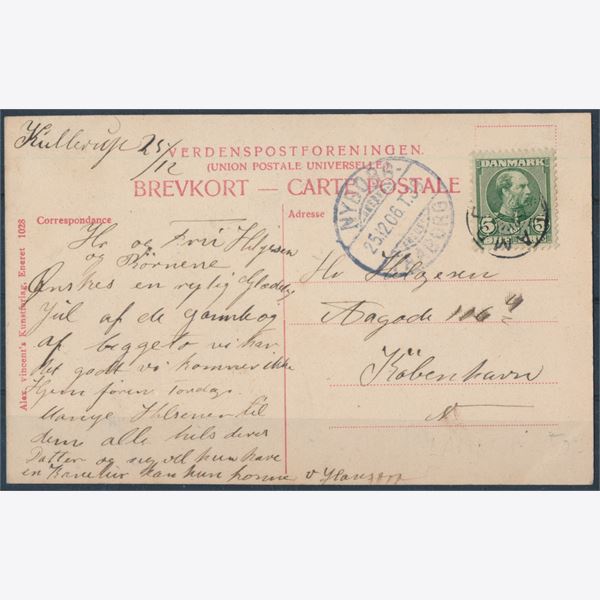 Kullerup 25/12
VERDENSPOSTFORENINGEN.
(UNION POSTALE UNIVERSELLE)
BREVKORT — CARTE POSTALE
DANMARK
5 5
NYBORG-
25.12.06
Correspondance
Adresse
Alex. vincent's Kunstforlag, Eneret 1028
Hr og Fru Helgesen
og Børnene
Ønskes en rigtig Glædelig
Jul af de gamle og
af begge to vi har
det godt vi kommer ikke
Hjem føren Torsdag
Mange Hilsener til
dem alle hils deres
Datter og sig vil hun have
en kan hun komme
Hr Helgesen
Aagade 106 4
København
N